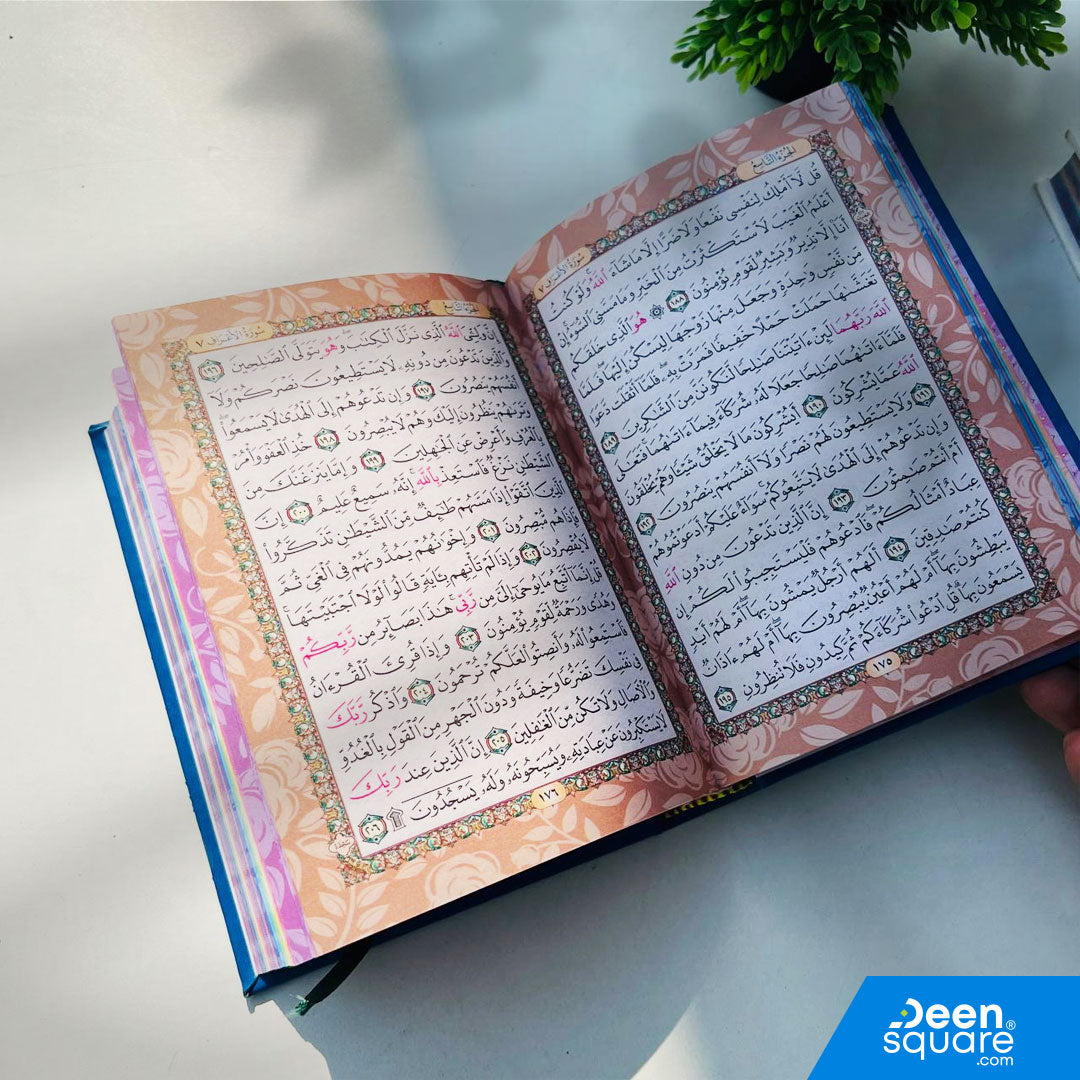 الجزء التاسع
سورة الأعراف ٧
قُل لَّآ أَمْلِكُ لِنَفْسِى نَفْعًا وَلَا ضَرًّا إِلَّا مَا شَآءَ ٱللَّهُ وَلَوْ كُنتُ
أَعْلَمُ ٱلْغَيْبَ لَٱسْتَكْثَرْتُ مِنَ ٱلْخَيْرِ وَمَا مَسَّنِىَ ٱلسُّوٓءُ إِنْ
أَنَا۠ إِلَّا نَذِيرٌ وَبَشِيرٌ لِّقَوْمٍ يُؤْمِنُونَ ١٨٨ ۞ هُوَ ٱلَّذِى خَلَقَكُم
مِّن نَّفْسٍ وَٰحِدَةٍ وَجَعَلَ مِنْهَا زَوْجَهَا لِيَسْكُنَ إِلَيْهَا فَلَمَّا
تَغَشَّىٰهَا حَمَلَتْ حَمْلًا خَفِيفًا فَمَرَّتْ بِهِۦ فَلَمَّآ أَثْقَلَت دَّعَوَا
ٱللَّهَ رَبَّهُمَا لَئِنْ ءَاتَيْتَنَا صَٰلِحًا لَّنَكُونَنَّ مِنَ ٱلشَّٰكِرِينَ ١٨٩
فَلَمَّآ ءَاتَىٰهُمَا صَٰلِحًا جَعَلَا لَهُۥ شُرَكَآءَ فِيمَآ ءَاتَىٰهُمَا فَتَعَٰلَى
ٱللَّهُ عَمَّا يُشْرِكُونَ ١٩٠ أَيُشْرِكُونَ مَا لَا يَخْلُقُ شَيْـًٔا وَهُمْ يُخْلَقُونَ
١٩١ وَلَا يَسْتَطِيعُونَ لَهُمْ نَصْرًا وَلَآ أَنفُسَهُمْ يَنصُرُونَ ١٩٢
وَإِن تَدْعُوهُمْ إِلَى ٱلْهُدَىٰ لَا يَتَّبِعُوكُمْ سَوَآءٌ عَلَيْكُمْ أَدَعَوْتُمُوهُمْ
أَمْ أَنتُمْ صَٰمِتُونَ ١٩٣ إِنَّ ٱلَّذِينَ تَدْعُونَ مِن دُونِ ٱللَّهِ
عِبَادٌ أَمْثَالُكُمْ فَٱدْعُوهُمْ فَلْيَسْتَجِيبُوا۟ لَكُمْ إِن
كُنتُمْ صَٰدِقِينَ ١٩٤ أَلَهُمْ أَرْجُلٌ يَمْشُونَ بِهَآ أَمْ لَهُمْ أَيْدٍ
يَبْطِشُونَ بِهَآ أَمْ لَهُمْ أَعْيُنٌ يُبْصِرُونَ بِهَآ أَمْ لَهُمْ ءَاذَانٌ
يَسْمَعُونَ بِهَا قُلِ ٱدْعُوا۟ شُرَكَآءَكُمْ ثُمَّ كِيدُونِ فَلَا تُنظِرُونِ ١٩٥
١٧٥
سورة الأعراف ٧
إِنَّ وَلِـِّۧىَ ٱللَّهُ ٱلَّذِى نَزَّلَ ٱلْكِتَٰبَ وَهُوَ يَتَوَلَّى ٱلصَّٰلِحِينَ ١٩٦
وَٱلَّذِينَ تَدْعُونَ مِن دُونِهِۦ لَا يَسْتَطِيعُونَ نَصْرَكُمْ وَلَآ
أَنفُسَهُمْ يَنصُرُونَ ١٩٧ وَإِن تَدْعُوهُمْ إِلَى ٱلْهُدَىٰ لَا يَسْمَعُوا۟
وَتَرَىٰهُمْ يَنظُرُونَ إِلَيْكَ وَهُمْ لَا يُبْصِرُونَ ١٩٨ خُذِ ٱلْعَفْوَ وَأْمُرْ
بِٱلْعُرْفِ وَأَعْرِضْ عَنِ ٱلْجَٰهِلِينَ ١٩٩ وَإِمَّا يَنزَغَنَّكَ مِنَ
ٱلشَّيْطَٰنِ نَزْغٌ فَٱسْتَعِذْ بِٱللَّهِ إِنَّهُۥ سَمِيعٌ عَلِيمٌ ٢٠٠ إِنَّ
ٱلَّذِينَ ٱتَّقَوْا۟ إِذَا مَسَّهُمْ طَٰٓئِفٌ مِّنَ ٱلشَّيْطَٰنِ تَذَكَّرُوا۟
فَإِذَا هُم مُّبْصِرُونَ ٢٠١ وَإِخْوَٰنُهُمْ يَمُدُّونَهُمْ فِى ٱلْغَىِّ ثُمَّ
لَا يُقْصِرُونَ ٢٠٢ وَإِذَا لَمْ تَأْتِهِم بِـَٔايَةٍ قَالُوا۟ لَوْلَا ٱجْتَبَيْتَهَا
قُلْ إِنَّمَآ أَتَّبِعُ مَا يُوحَىٰٓ إِلَىَّ مِن رَّبِّى هَٰذَا بَصَآئِرُ مِن رَّبِّكُمْ
وَهُدًى وَرَحْمَةٌ لِّقَوْمٍ يُؤْمِنُونَ ٢٠٣ وَإِذَا قُرِئَ ٱلْقُرْءَانُ
فَٱسْتَمِعُوا۟ لَهُۥ وَأَنصِتُوا۟ لَعَلَّكُمْ تُرْحَمُونَ ٢٠٤ وَٱذْكُر رَّبَّكَ
فِى نَفْسِكَ تَضَرُّعًا وَخِيفَةً وَدُونَ ٱلْجَهْرِ مِنَ ٱلْقَوْلِ بِٱلْغُدُوِّ
وَٱلْءَاصَالِ وَلَا تَكُن مِّنَ ٱلْغَٰفِلِينَ ٢٠٥ إِنَّ ٱلَّذِينَ عِندَ رَبِّكَ
لَا يَسْتَكْبِرُونَ عَنْ عِبَادَتِهِۦ وَيُسَبِّحُونَهُۥ وَلَهُۥ يَسْجُدُونَ ۩ ٢٠٦
١٧٦
Deen
square®
.com